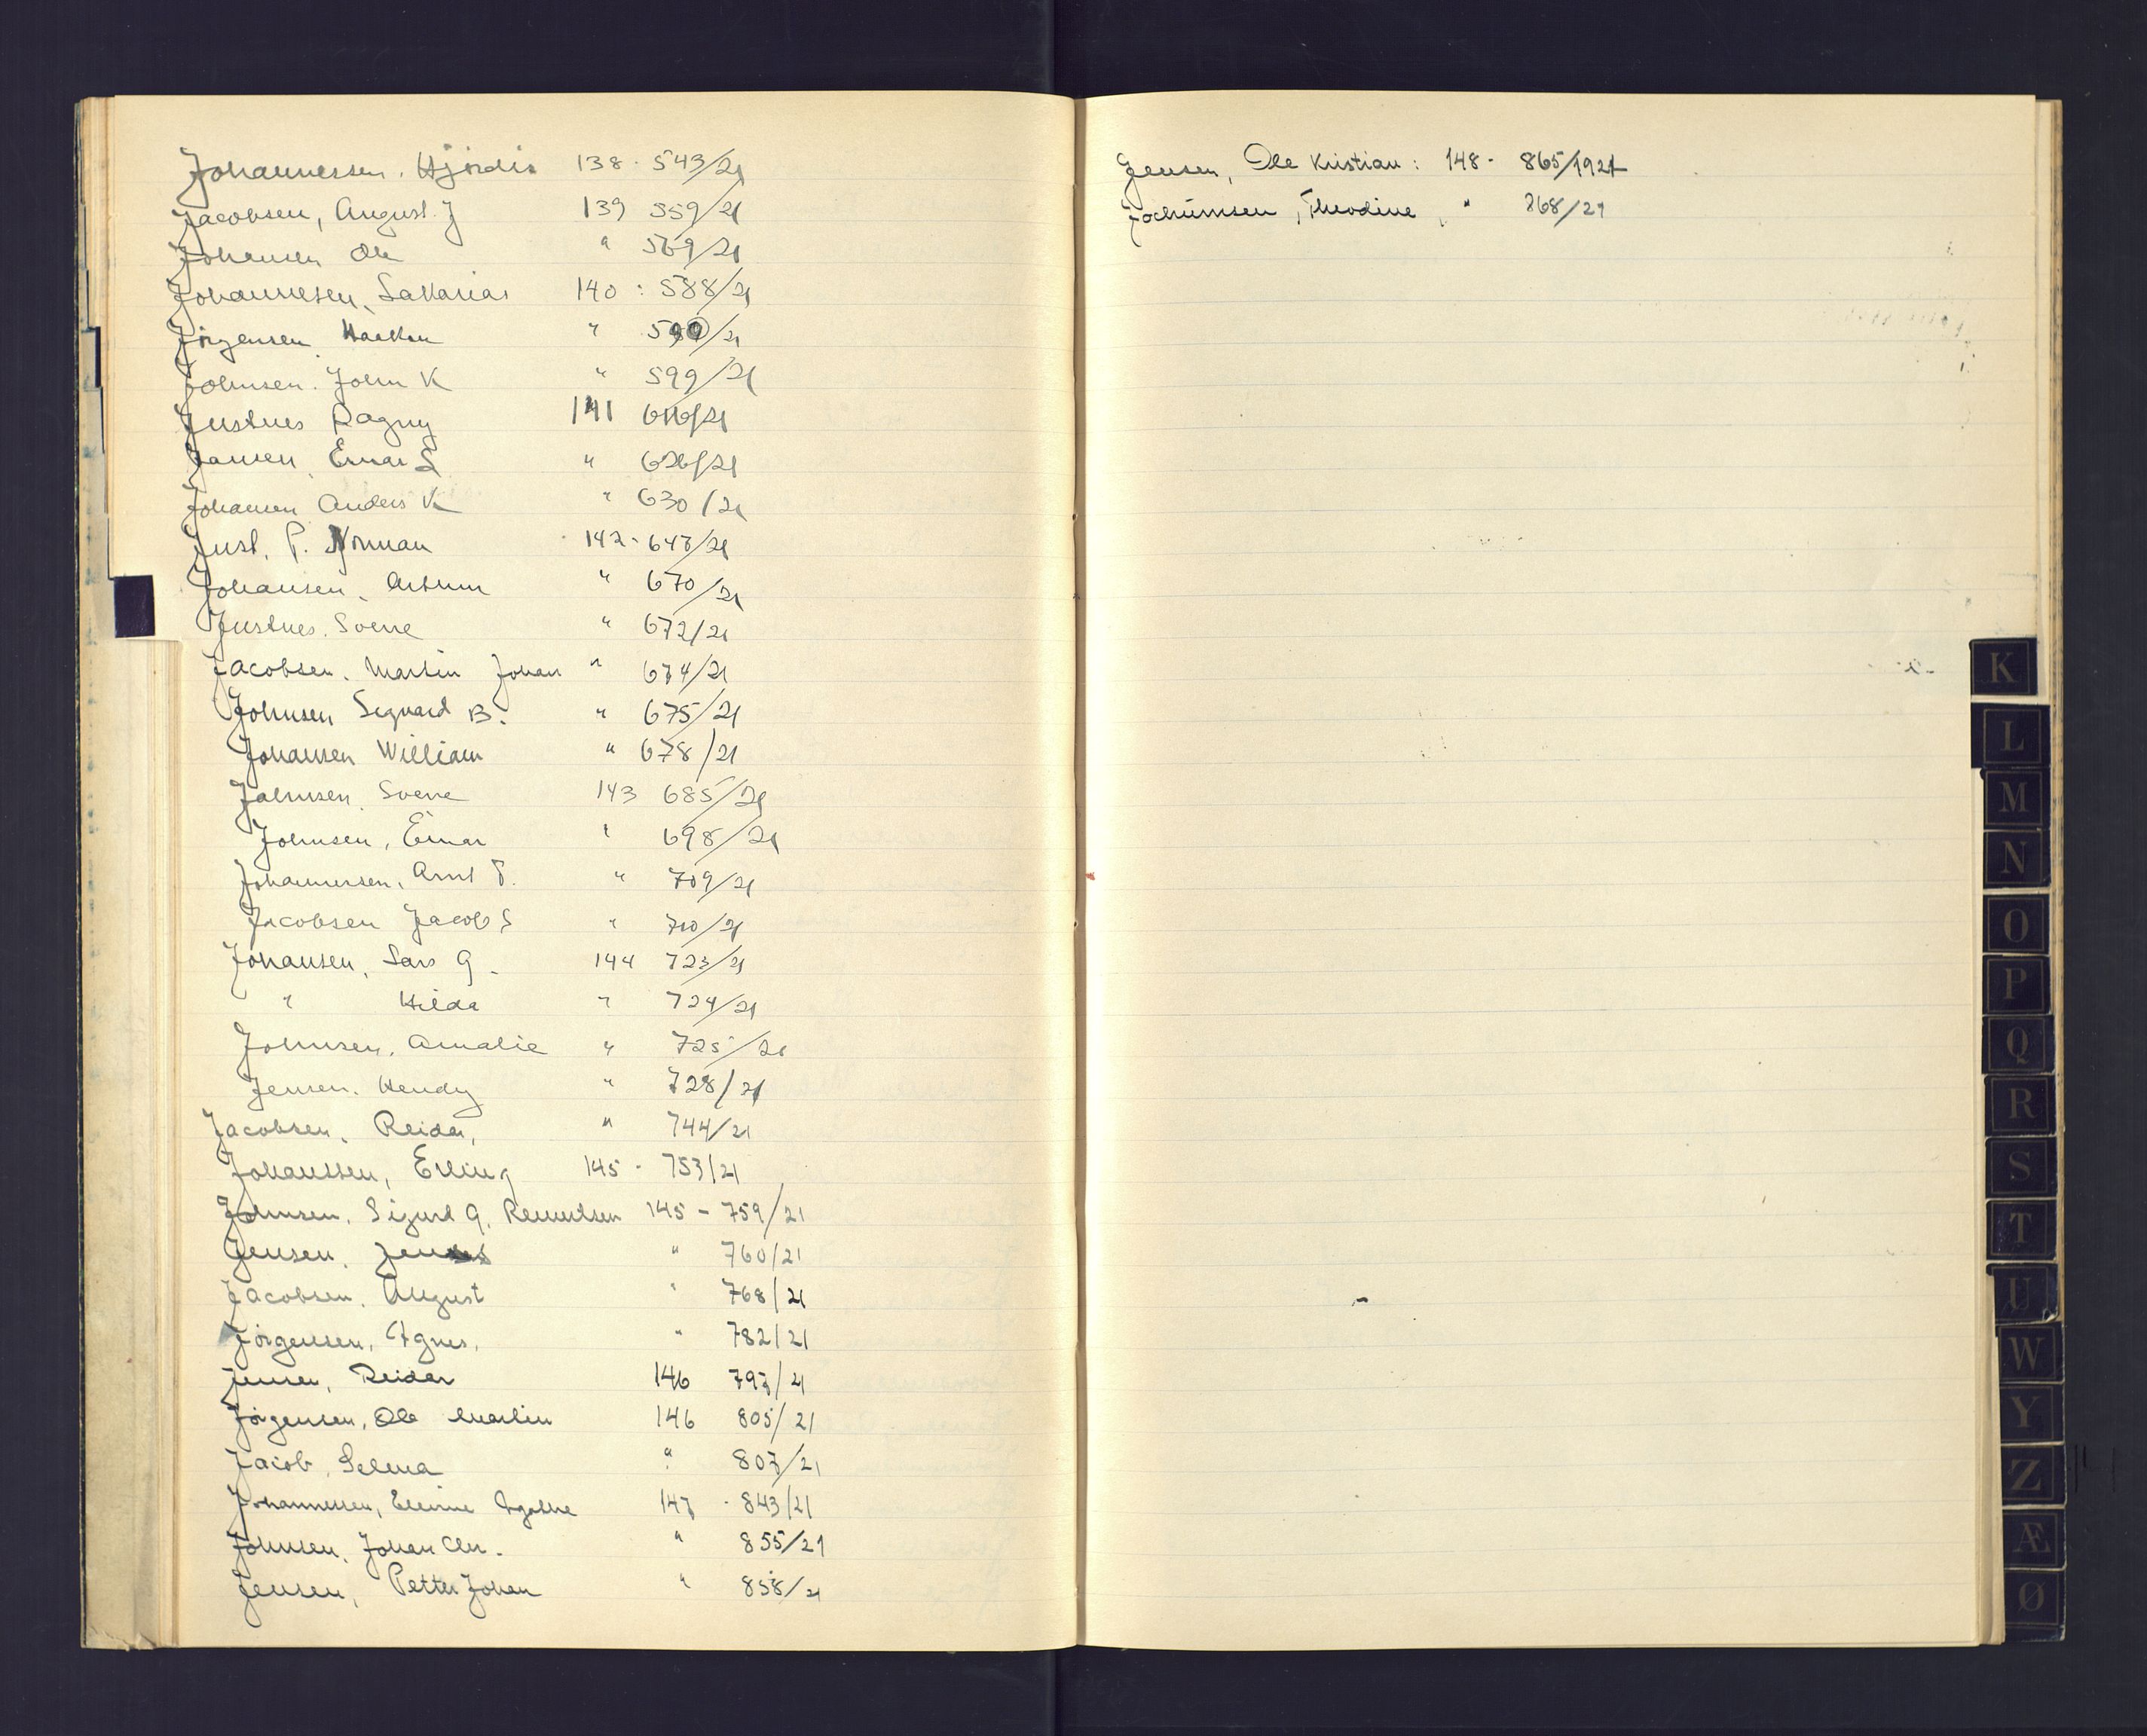 Johannessen. Hjördis 138 - 543/21
Jacobsen, August. J 139 559/21
Johansen Ole " 569/21
Johannesen, Sakarias 140 : 588/21
Jörgensen Haakon " /21
Johnsen. John K " 599/21
Justnes Ragny 141 616/21
Jansen, Einar S " 626/21
Johansen Anders K " 630/21
Just, P. Norman 142 - 647/21
Johansen, Arthur " 670/21
Justnes. Sverre " 672/21
Jacobsen. Martin Johan " 674/21
Johnsen Sigvard B. " 675/21
Johansen William " 678/21
Johnsen. Sverre 143 685/21
Johnsen, Einar " 698/21
Johannessen, Arnt T. " 709/21
Jacobsen Jacob S " 710/21
Johansen, Lars G. 144 723/21
" Hilda " 724/21
Johnsen. Amalie " 725/21
Jensen. Hendy " 728/21
Jacobsen, Reidar, " 744/21
Johanssen, Erling 145 - 753/21
Johnsen. Sigurd G. 145 - 759/21
Jensen. " 760/21
Jacobsen. August " 768/21
Jörgensen, Agnes. " 782/21
Jensen, Reidar 146 797/21
Jörgensen, Ole Martin 146 805/21
Jacob, Selma " 807/21
Johannessen, Elevine Agathe 147 - 843/21
Johnsen. Johan Chr. " 855/21
Jensen, Petter Johan " 858/21
Jensen, Ole Kristian : 148 - 865/1921
Jochümsen, Theodine, " 868/21
K
L
M
N
O
P
Q
R
S
T
U
W
Y
Z
Æ
Ø